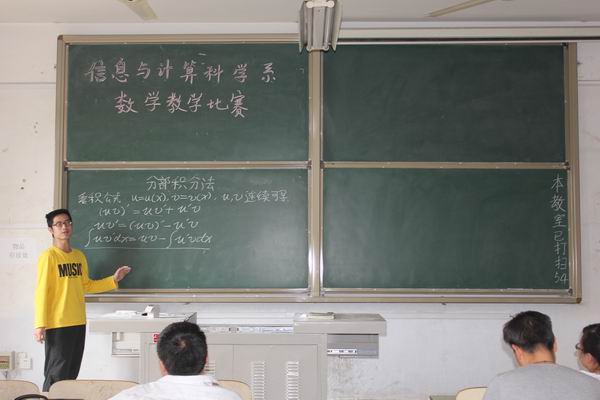 信息与计算科学系
数学教学比赛
分部积分法
乘积公式 u=u(x), v=v(x), u,v连续可导
(uv)'=uv'+u'v
uv'=(uv)'-u'v
∫uv'dx=uv-∫u'vdx
本教室已打扫54
MUSIC
物品